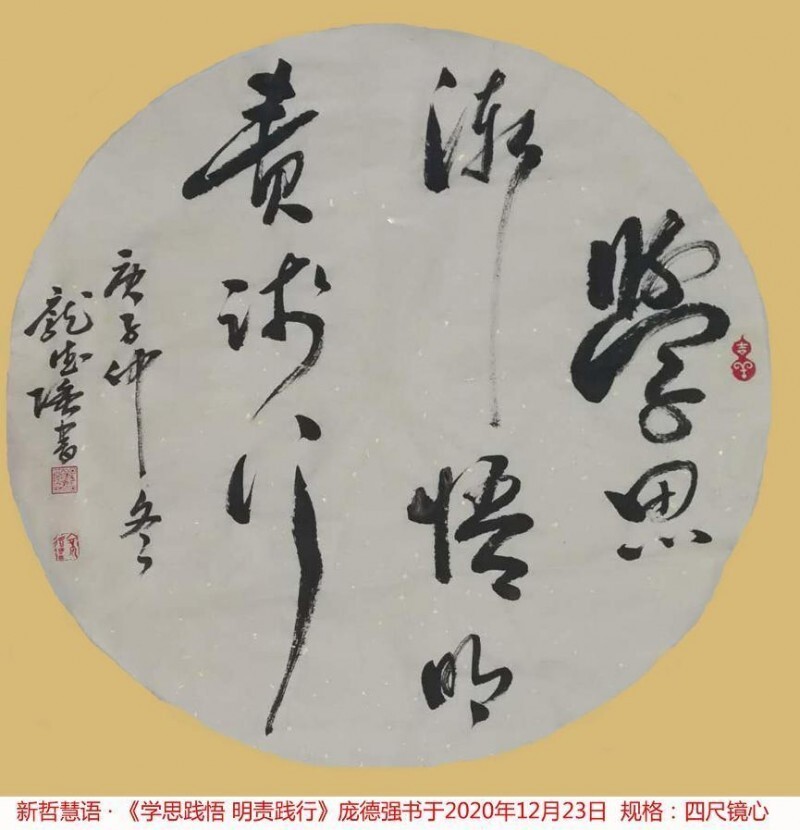 學思
漸悟明
责践行
庚子仲冬
龐德强書
吉羊
新哲慧语·《学思践悟 明责践行》庞德强书于2020年12月23日 规格：四尺镜心